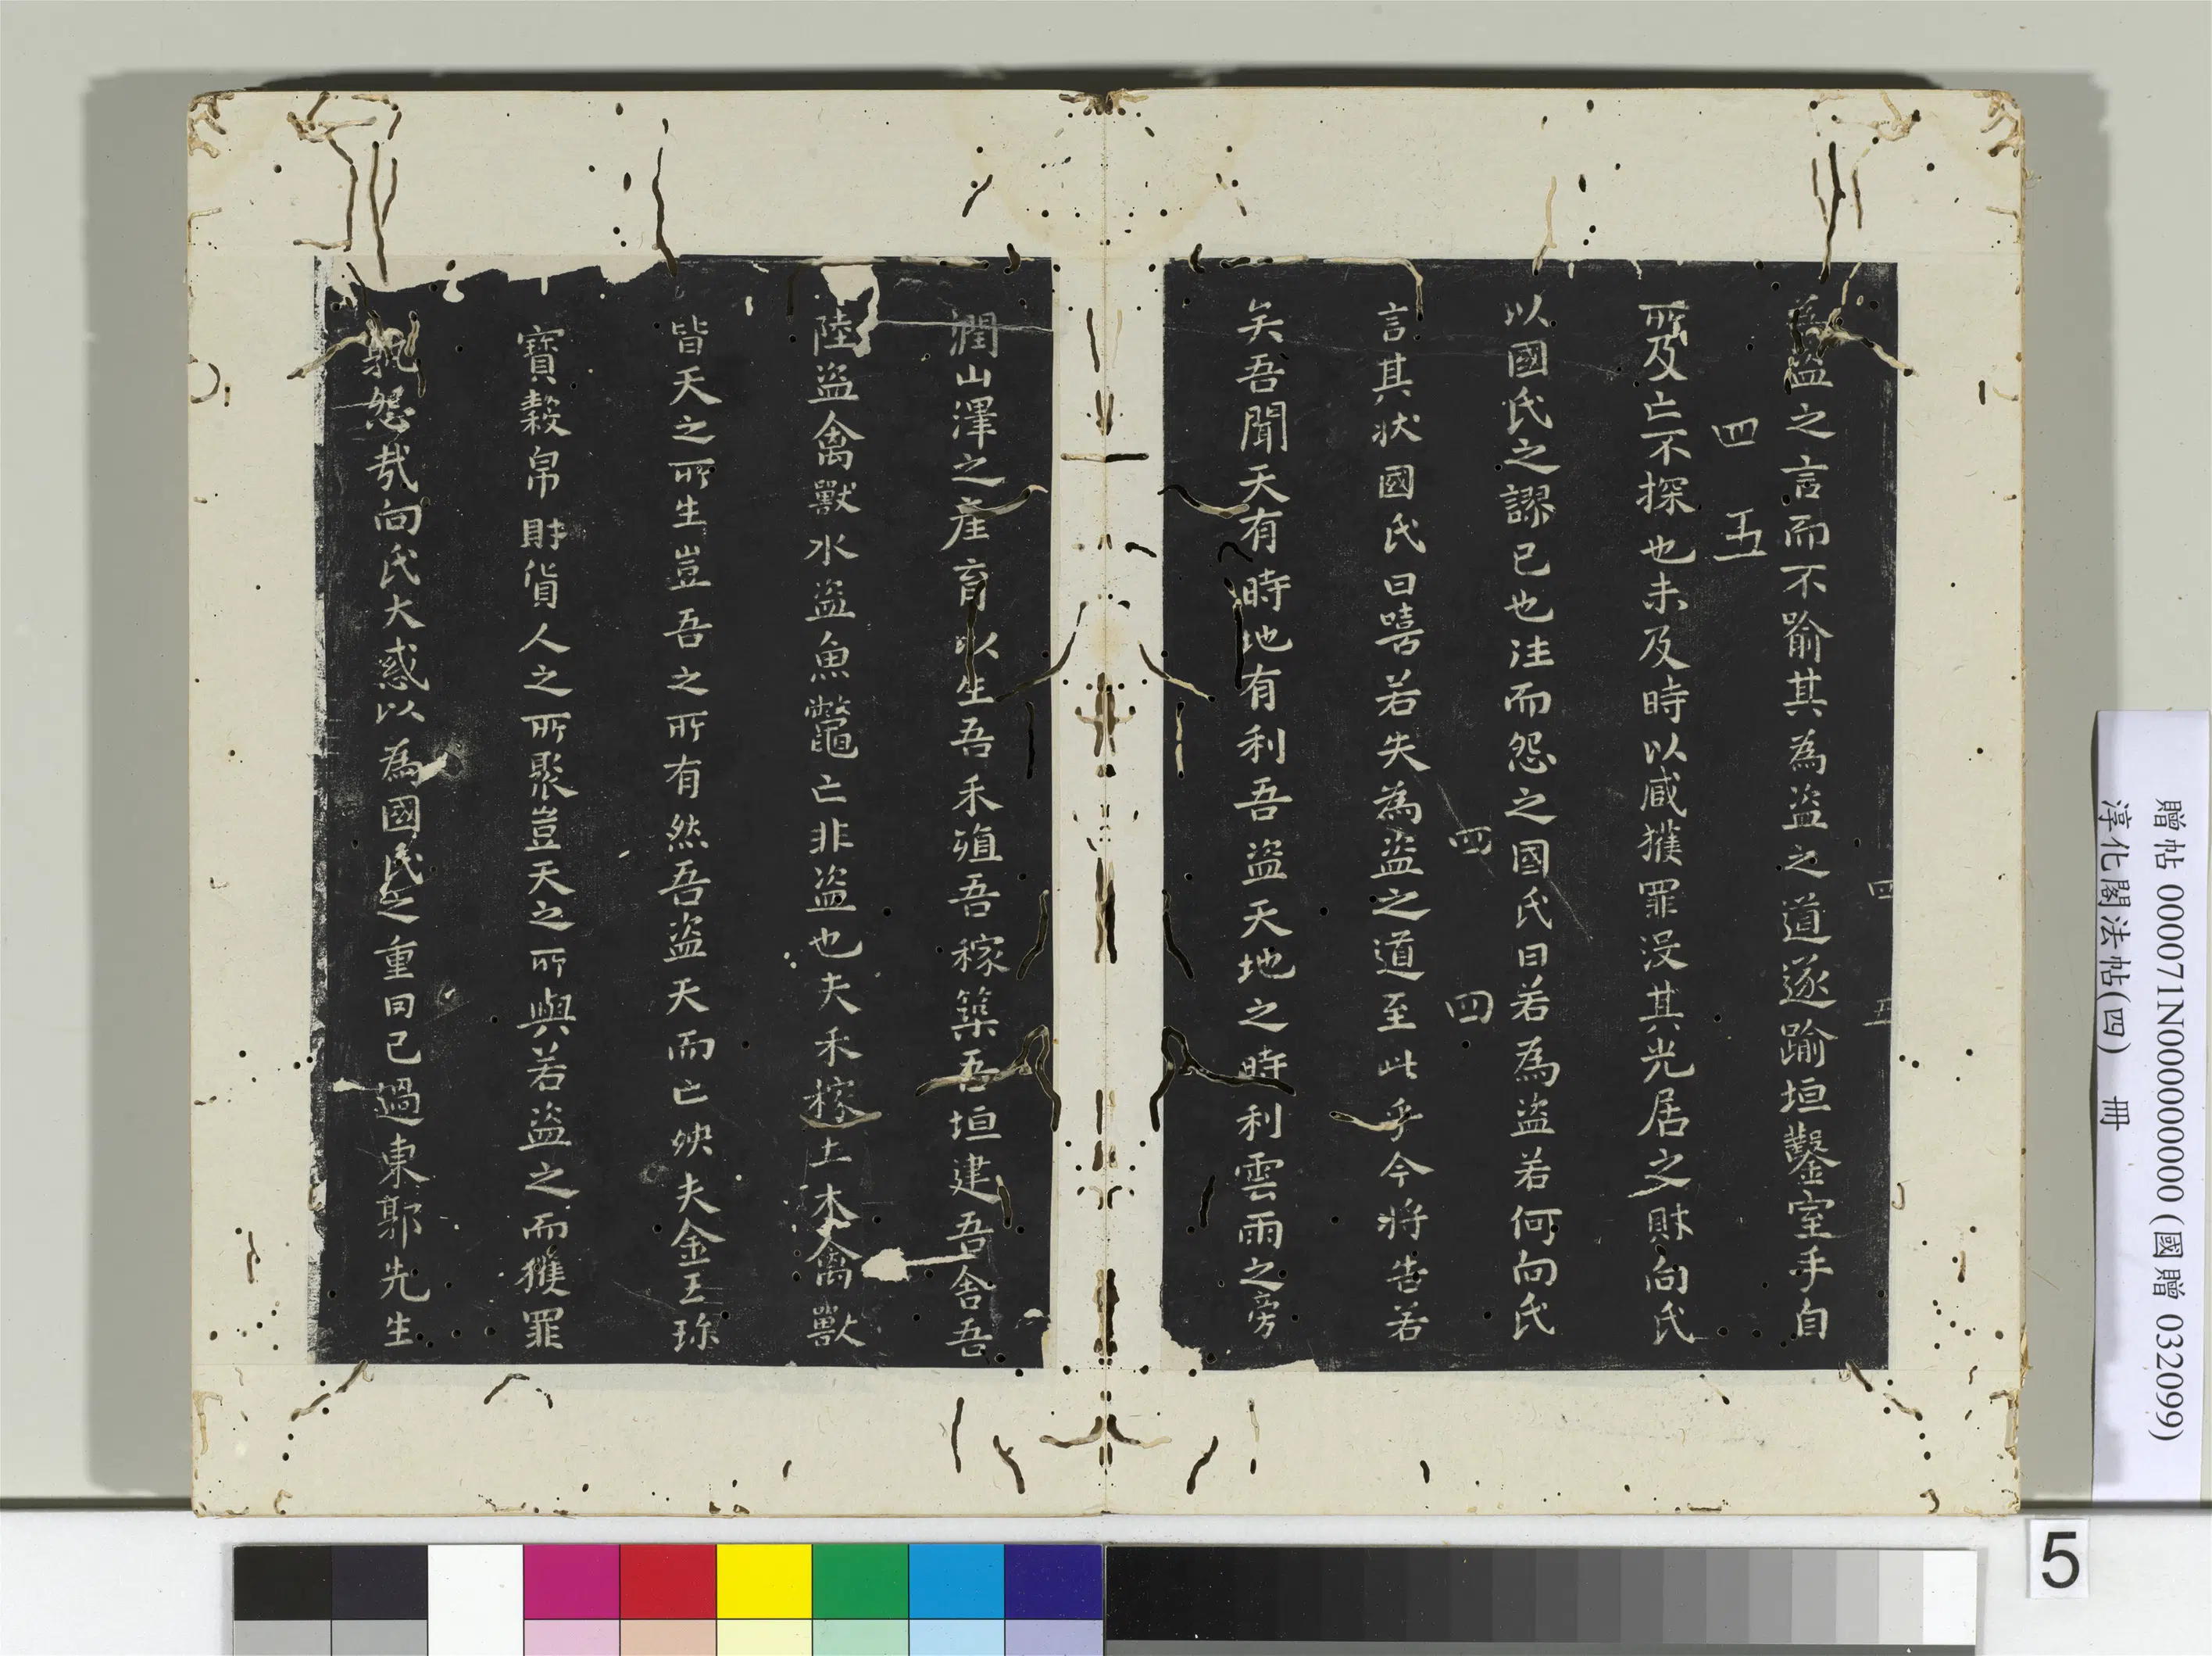 為盗之言而不喻其為盗之道遂踰垣鑿室手自
四 五
所及亡不探也未及時以臧獲罪没其先居之財向氏
以國氏之謬已也往而怨之國氏曰若為盗若何向氏
四 四
言其状國氏曰嘻若失為盗之道至此乎今将告若
矣吾聞天有時地有利吾盗天地之時利雲雨之旁
潤山澤之産育以生吾禾殖吾稼築吾垣建吾舎吾
陸盗禽獸水盗魚鼈亡非盗也夫禾稼土木禽獸
皆天之所生豈吾之所有然吾盗天而亡殃夫金玉珎
寶穀帛財貨人之所聚豈天之所與若盗之而獲罪
孰怨哉向氏大惑以為國氏之重罔己過東郭先生
四 五
贈帖 000071N000000000 (國贈 032099)
淳化閣法帖(四) 冊
5